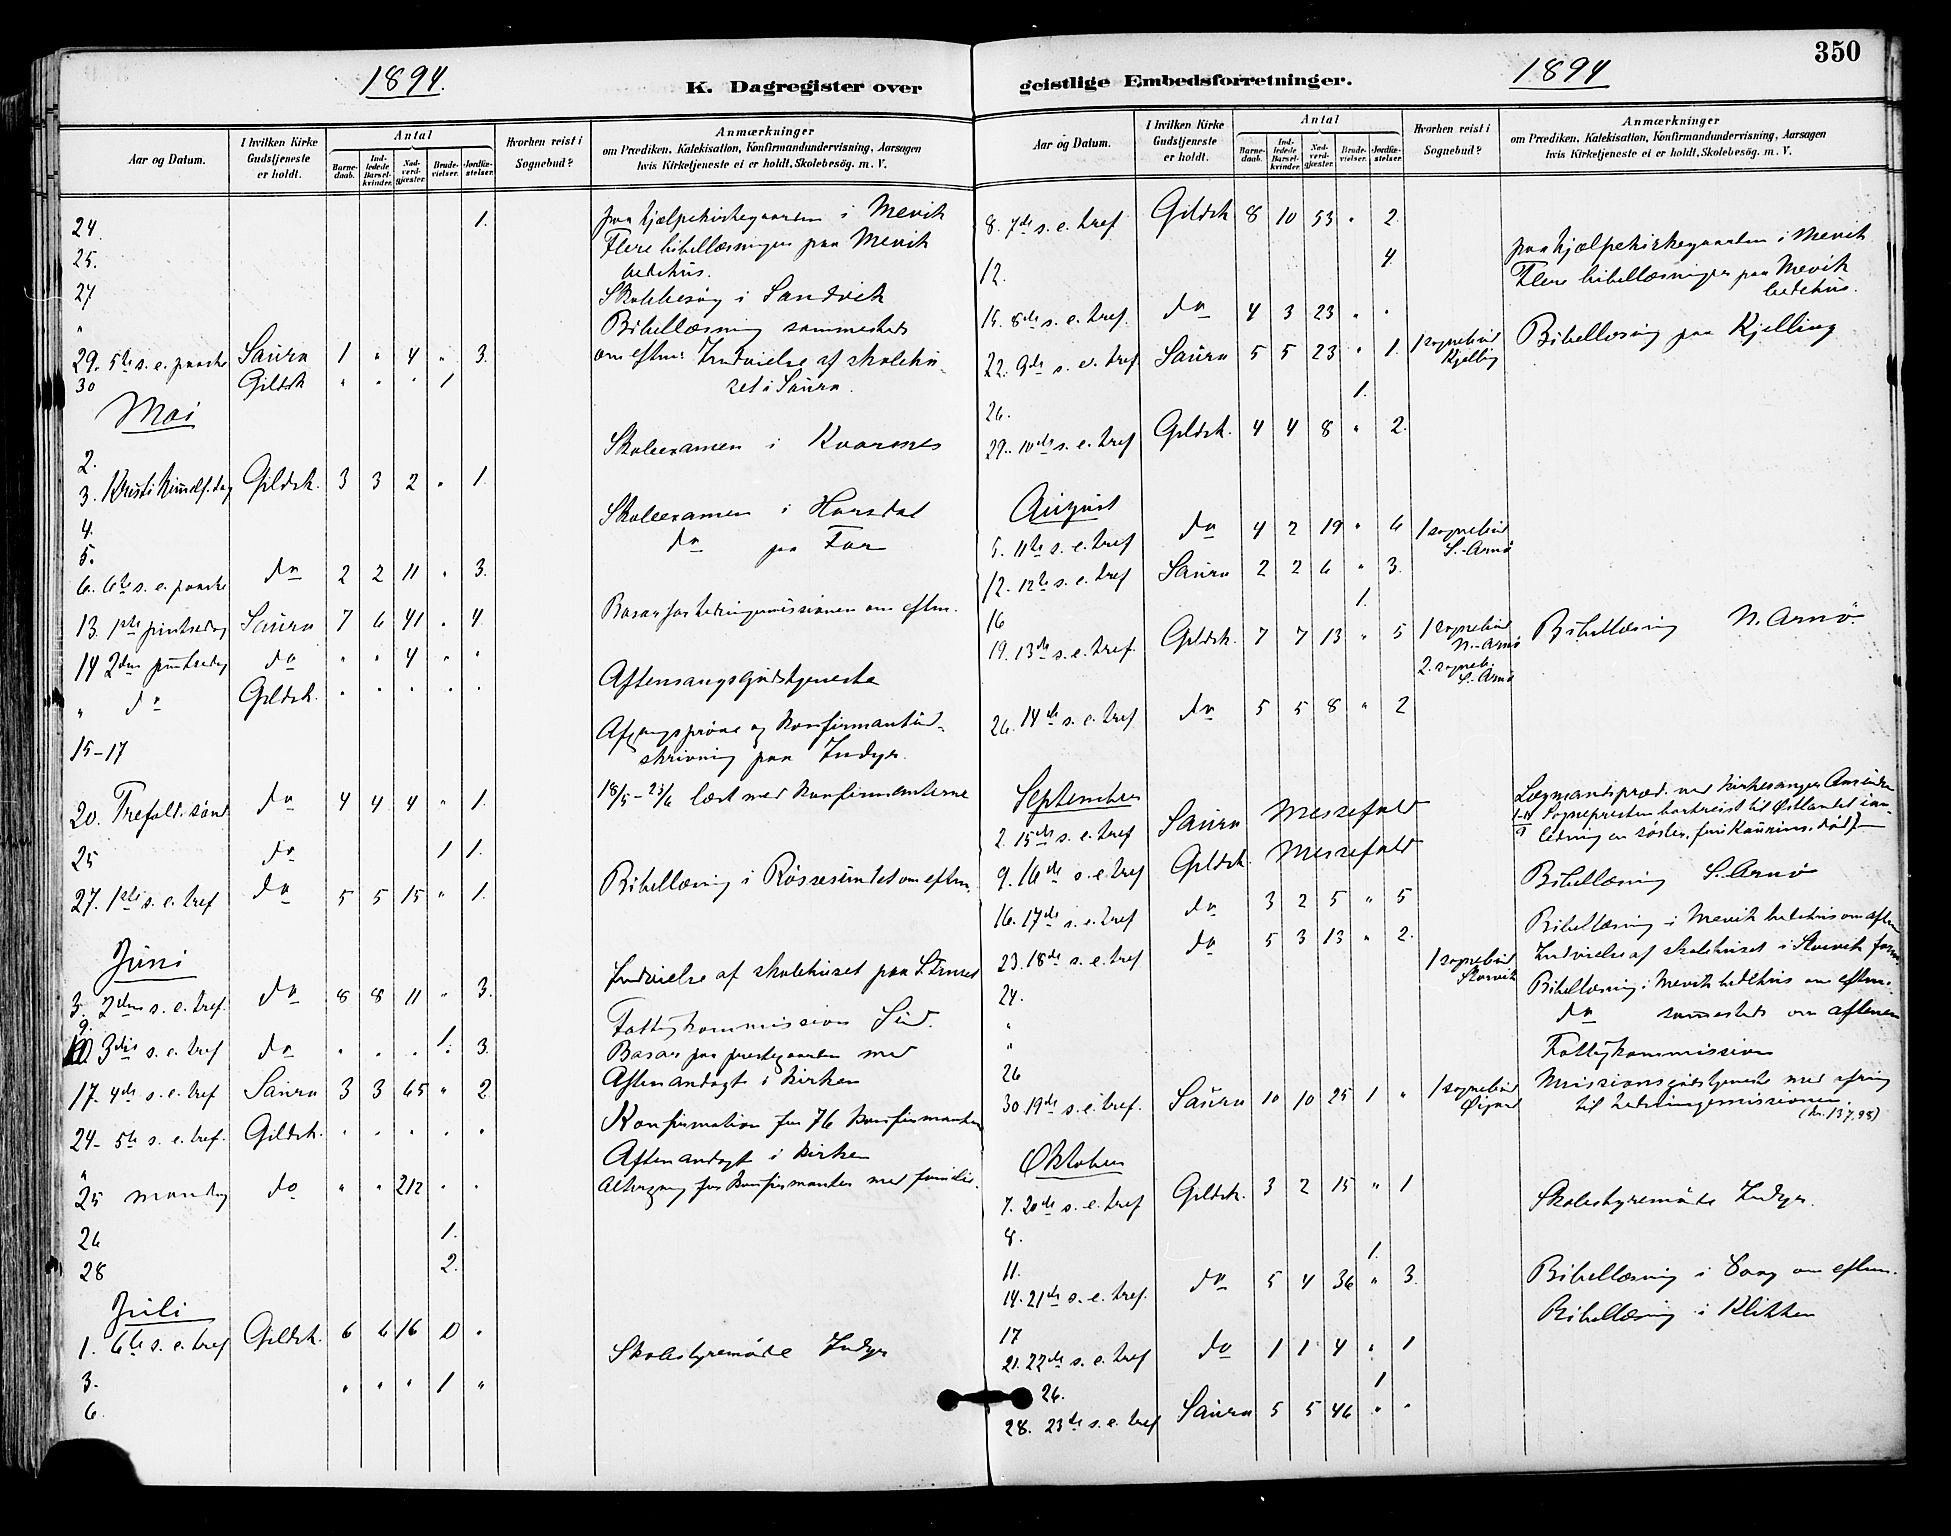 350
1894.
K. Dagregister over
Aar og Datum.
I hvilken Kirke Gudstjeneste er holdt.
Antal
Barne-daab.
Ind-ledede Barsel-kvinder.
Nad-verd-gjæster.
Brude-vielser.
Jordfæ-stelser.
Hvorhen reist i Sognebud?
Anmærkninger
om Prædiken, Katekisation, Konfirmandundervisning, Aarsagen
hvis Kirketjeneste ei er holdt, Skolebesøg. m. V.
24. 1. paa hjælpekirkegaarden i Mevik
25. Flere bibellæsninger paa Mevik
bedehus.
27 Skolebesøg i Sandvik
" Bibellæsning sammesteds
29. 5te s. e. paaske Saura 1 " 4 " 3. om eftm: Indvielse af skolehu-
30 Gildsk " " " 1 set i Saura.
Mai
2. Skoleexamen i Kvarsnes
3. Kristi himmelf. dag Gildsk. 3 3 2 " 1.
4. Skoleexamen i Horsdal
5. do paa Før
6. 6te s. e. paaske do 2 2 11 " 3.
13. 1ste pintsedag Saura 7 6 41 " 4. Basar for hedningemissionen om eftm.
14 2den pintsedag do " " 4 " "
" do Gildsk. " " " " " Aftensangsgudstjeneste
15-17 Afgangsprøve og konfirmantind-
skrivning paa Indyr.
20. Trefold. sønd. do 4 4 4 " 1. 18/5 - 23/6 læst med konfirmanterne
25 do 1 1.
27. 1ste s. e. tref do 5 5 15 " 1. Bibellæsning i Røssesundet om eftm.
Juni
3. 2den s. e. tref. do 8 8 11 " 3. Indvielse af skolehuset paa
9. 1. Fattigkommission
10 3die s. e. tref do " " " " 3. Basar paa prestegaarden med
Aftenandagt i kirken
17. 4de s. e. tref Saura 3 3 65 " 2
24- 5te s. e. tref. Gildsk. " " " " " Konfirmation for 76 konfirmanter
" Aftenandagt i kirken
25 mandag do " " 212 " " Altergang for konfirmanter med familie.
26 1.
28 2.
Juli
1. 6te s. e. tref Gildsk. 6 6 16 0 "
3. Skolestyremøde Indyr
6. " " " 1 "
1894
geistlige Embedsforretninger.
Aar og Datum.
I hvilken Kirke Gudstjeneste er holdt.
Antal
Barne-daab.
Ind-ledede Barsel-kvinder.
Nad-verd-gjæster.
Brude-vielser.
Jordfæ-stelser.
Hvorhen reist i Sognebud?
Anmærkninger
om Prædiken, Katekisation, Konfirmandundervisning, Aarsagen
hvis Kirketjeneste ei er holdt, Skolebesøg. m. V.
8. 7de s. e. tref Gildsk 8 10 53 " 2.
12. 4. paa hjælpekirkegaarden i Mevik
Flere bibellæsninger paa Mevik
bedehus.
15. 8de s. e. tref. do 4 3 23 " "
22. 9de s. e. tref Saura 5 5 23 " 1. 1 sognebud Kjelling Bibellæsning paa Kjelling
26. 1.
29. 10de s. e. tref Gildsk. 4 4 8 " 2.
August
5. 11te s. e. tref do 4 2 19 " 6 1 sognebud S. Arnø
12. 12te s. e. tref Saura 2 2 6 " 3.
16 1.
19. 13de s. e. tref. Gildsk. 7 7 13 " 5 1 sognebud N. Arnø Bibellæsning N. Arnø.
2. sogneb. S. Arnø
26. 14de s. e. tref do 5 5 8 " 2
September
2. 15de s. e. tref Saura Messefald Lægmandspræd. ved kirkesanger
Sognepresten bortreist til Østlandet i an-
ledning en søster, død
9. 16de s. e. tref Gildsk. Messefald
16. 17de s. e. tref do 3 2 5 " 5 Bibellæsning S. Arnø
23. 18de s. e. tref do 5 3 13 " 2. Bibellæsning i Mevik bedehus om aften
24. 1 sognebud Storvik Indvielse af skolehuset i Storvik form
" Bibellæsning i Mevik bedehus om eftm.
" do sammesteds om aftenen
26 Fattigkommission
30 19de s. e. tref. Saura 10 10 25 1 " 1 sognebud Missionsgudstjeneste med ofring
til hedningemissionen.
(kr. 137,98)
Oktober
7. 20de s. e. tref Gildsk. 3 2 15 " 1
8. Skolestyremøde Indyr.
11. 1.
14. 21de s. e. tref. do 5 4 36 " 3. Bibellæsning i om eftm.
17 Bibellæsning i Klikken
21. 22de s. e. tref do 1 1 4 " 1
26. 1
28. 23de s. e. tref Saura 5 5 46 " "